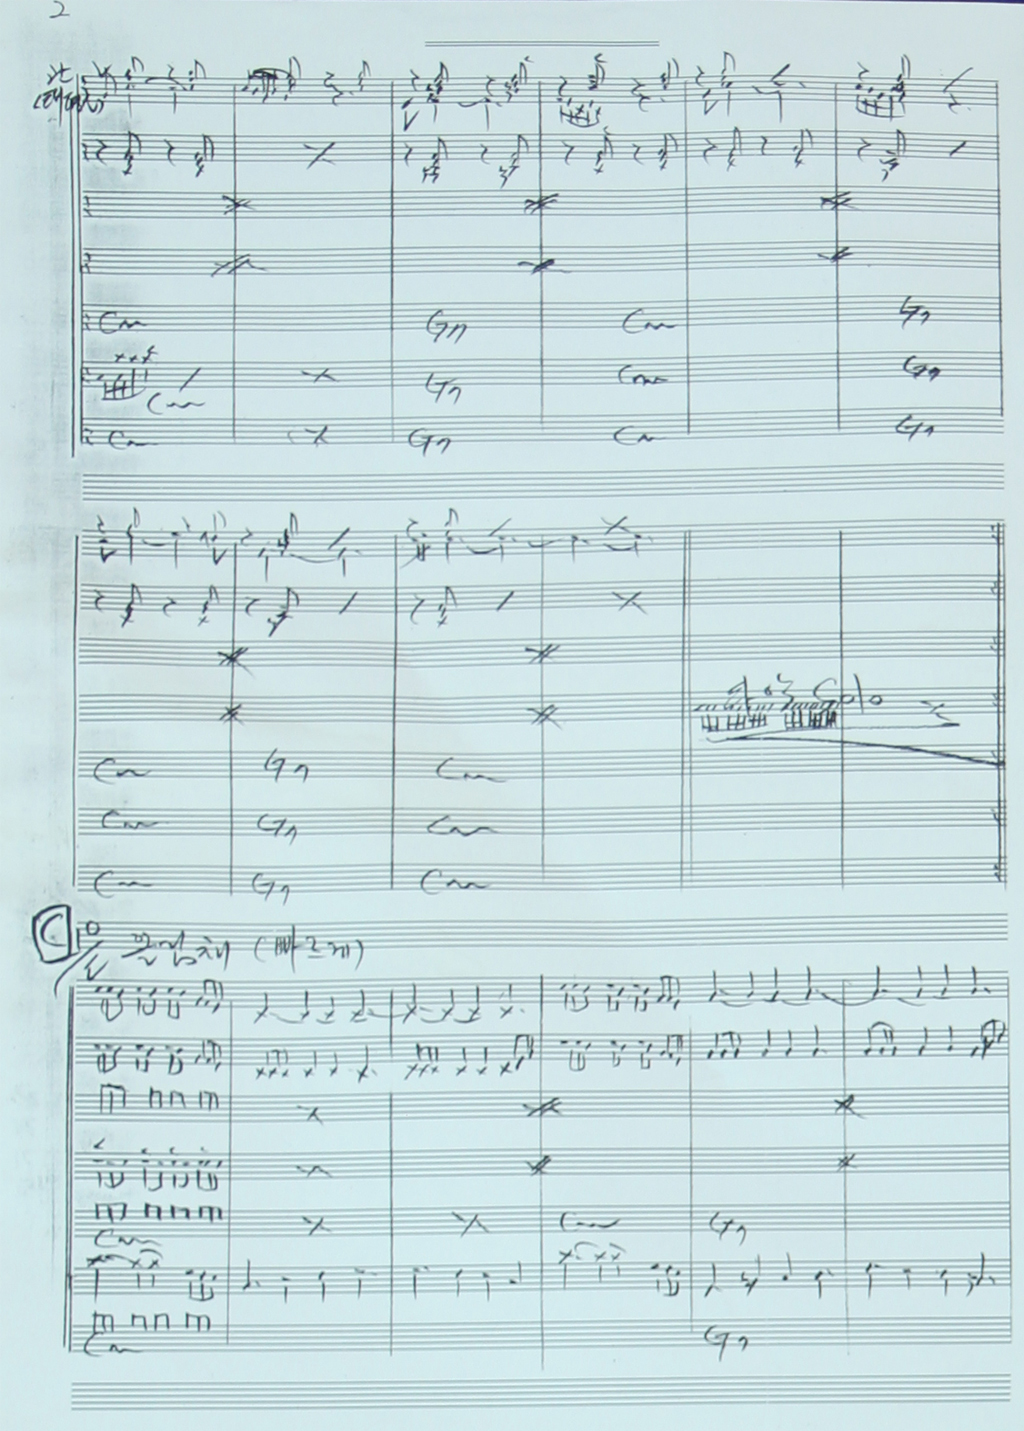 2
Cm G7 Cm G7
Cm G7 Cm G7
Cm G7 Cm G7
Solo
Cm G7 Cm
Cm G7 Cm
Cm G7 Cm
C
(빠르게)
Cm Cm G7
Cm G7